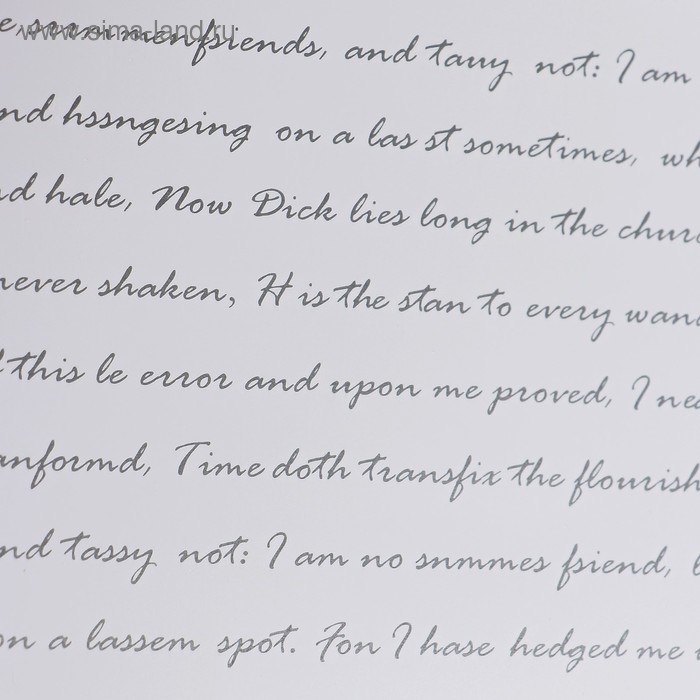 www.sima-land.ru
fsiends, and tauy not: I am
nd hssngesing on a las st sometimes, wh
nd hale, Now Dick lies long in the churc
never shaken, H is the stan to every wand
this le error and upon me proved, I nea
anformd, Time doth transfix the flourish
nd tassy not: I am no snmmes fsiend, b
on a lassem spot. Fon I hase hedged me